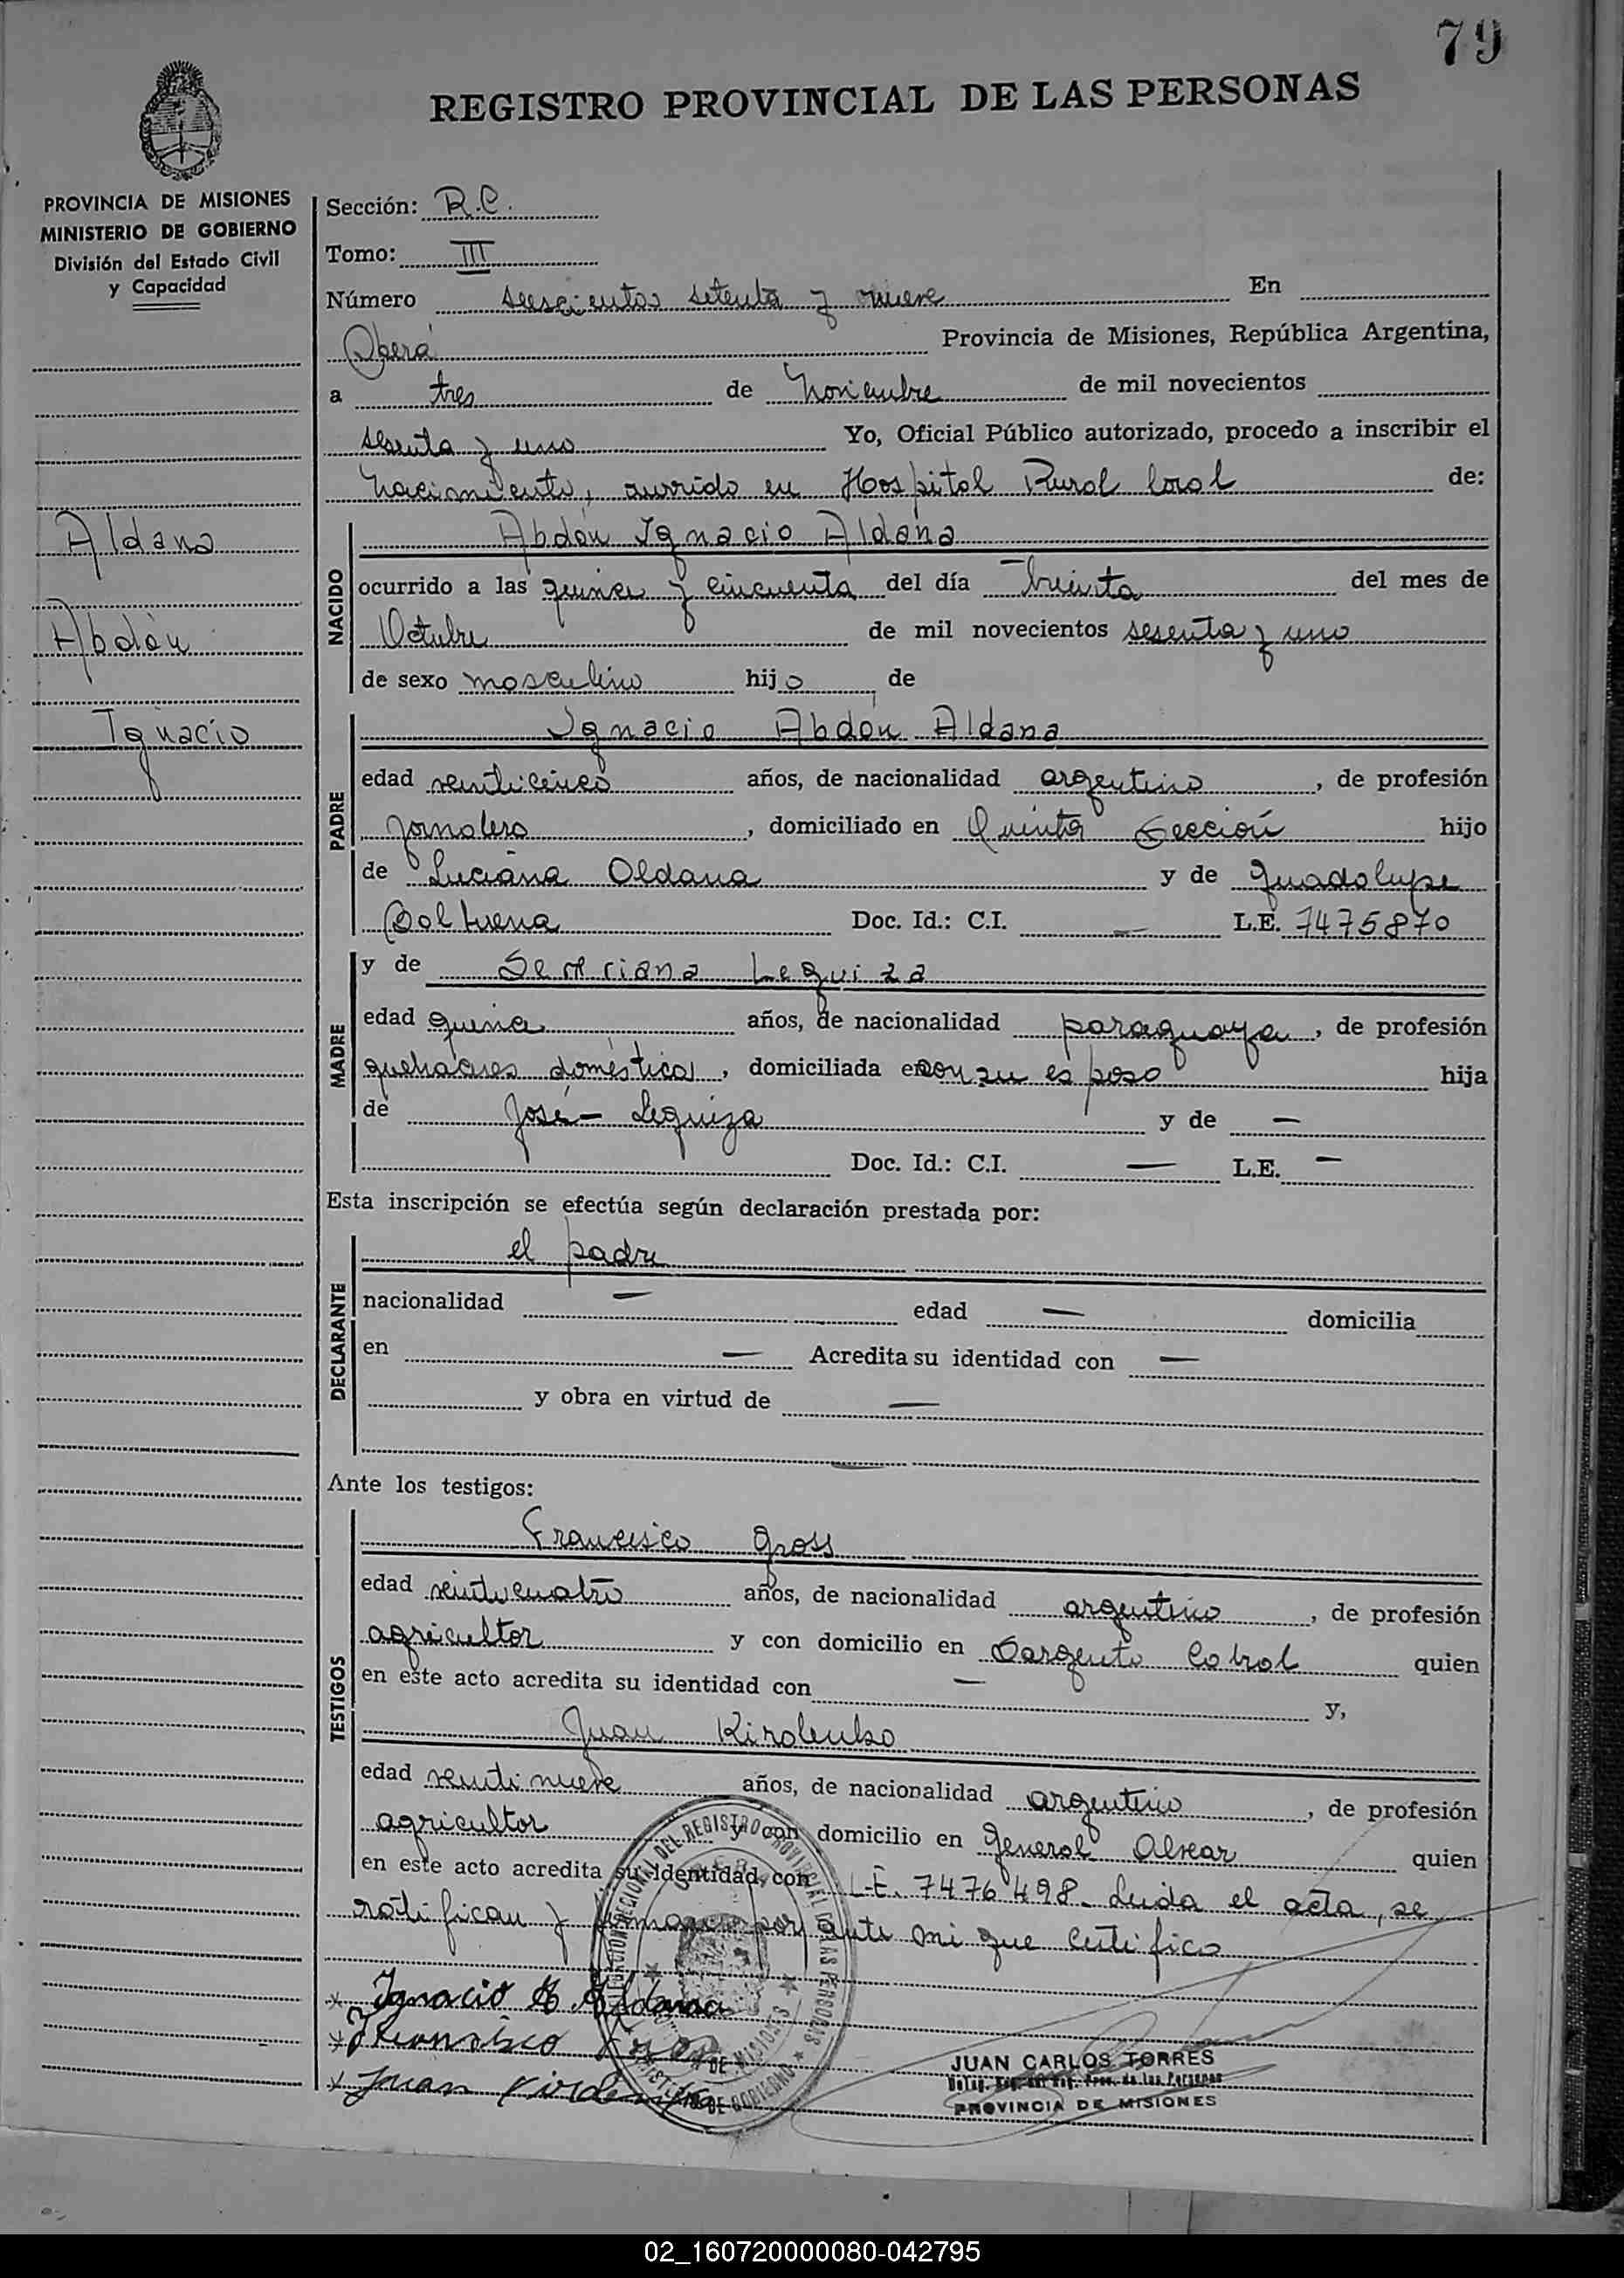 79
REGISTRO PROVINCIAL DE LAS PERSONAS
PROVINCIA DE MISIONES
MINISTERIO DE GOBIERNO
División del Estado Civil
y Capacidad
Aldana
Abdón
Ignacio
Sección: R.C.
Tomo: III
Número seiscientos setenta y nueve En
Oberá Provincia de Misiones, República Argentina,
a tres de Noviembre de mil novecientos
sesenta y uno Yo, Oficial Público autorizado, procedo a inscribir el
nacimiento, ocurrido en Hospital Rural local de:
NACIDO
Abdón Ignacio Aldana
ocurrido a las quince y cincuenta del día Treinta del mes de
Octubre de mil novecientos sesenta y uno
de sexo masculino hijo de
PADRE
Ignacio Abdón Aldana
edad veinticinco años, de nacionalidad argentino, de profesión
jornalero, domiciliado en Quinta Sección hijo
de Luciana Aldana y de Guadalupe
Doc. Id.: C.I. — L.E. 7475870
MADRE
y de Leguiza
edad quince años, de nacionalidad paraguaya, de profesión
quehaceres domésticos, domiciliada en con su esposo hija
de José — Leguiza y de —
Doc. Id.: C.I. — L.E. —
Esta inscripción se efectúa según declaración prestada por:
DECLARANTE
el padre
nacionalidad — edad — domicilia
en — Acredita su identidad con —
y obra en virtud de —
—
Ante los testigos:
TESTIGOS
Francisco Gross
edad veinticuatro años, de nacionalidad argentino, de profesión
agricultor y con domicilio en Sargento Cabral quien
en este acto acredita su identidad con — y,
Juan
edad veintinueve años, de nacionalidad argentino, de profesión
agricultor y con domicilio en General Alvear quien
en este acto acredita su identidad con L.E. 7476498. Leida el acta, se
ratifican y firman por ante mi que certifico
Ignacio A. Aldana
Francisco Gross
Juan
JUAN CARLOS TORRES
PROVINCIA DE MISIONES
02_160720000080-042795